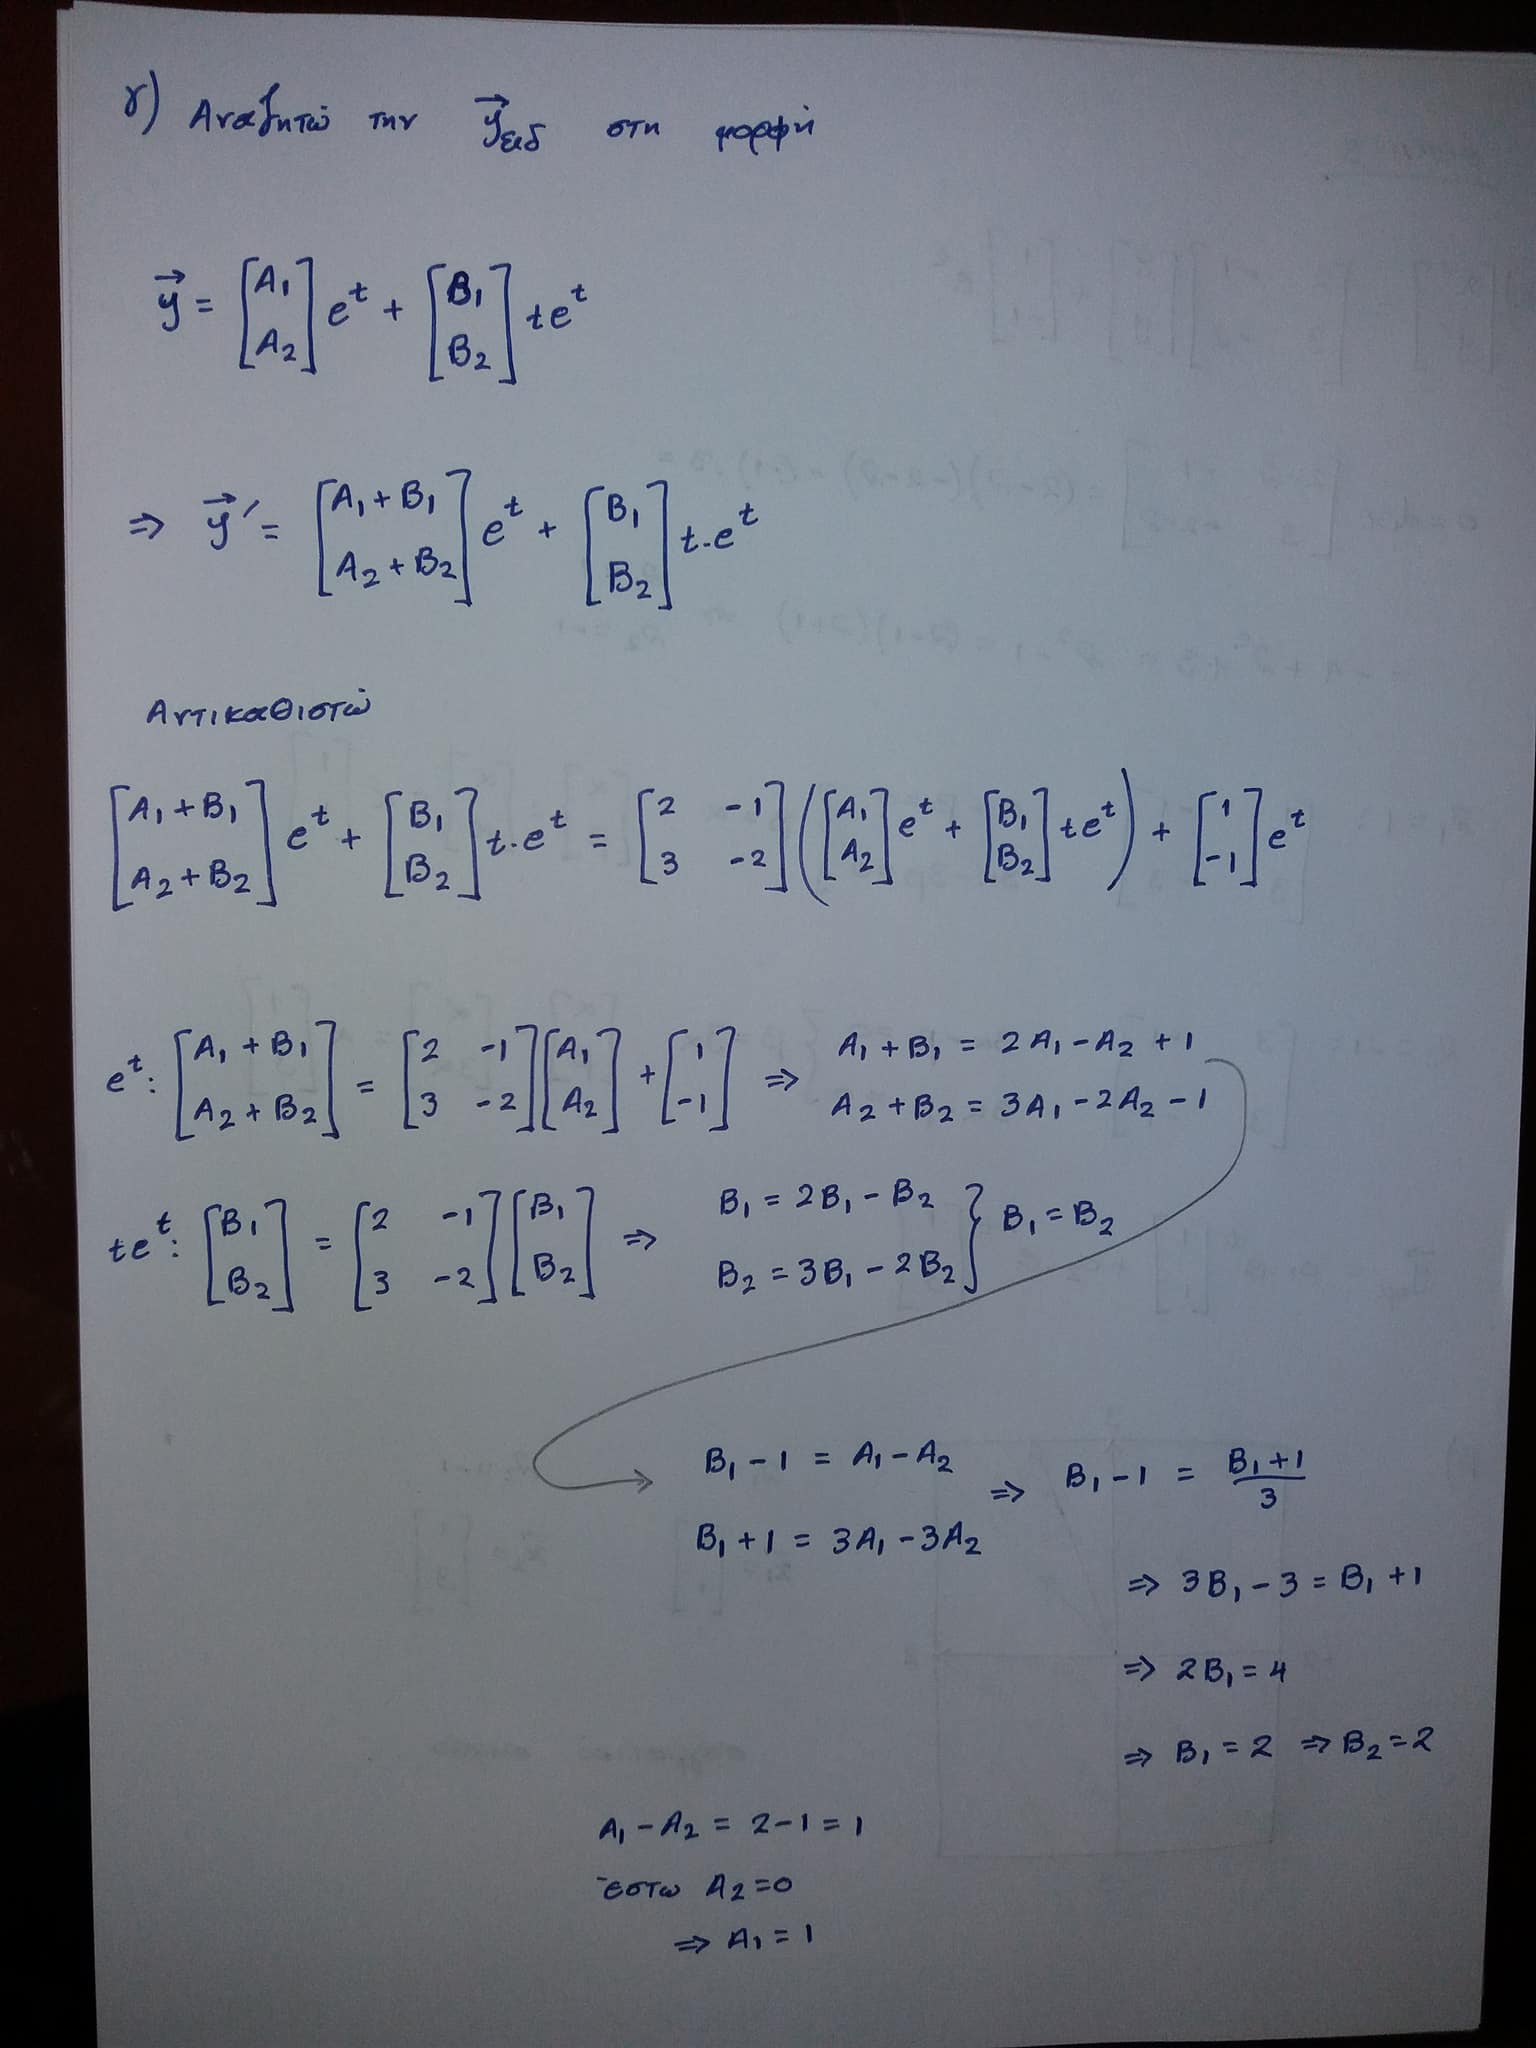 γ) Αναζητώ την y⃗ειδ στη μορφή
y⃗ = [A₁ A₂] eᵗ + [B₁ B₂] teᵗ
⇒ y⃗′ = [A₁+B₁ A₂+B₂] eᵗ + [B₁ B₂] t.eᵗ
Αντικαθιστώ
[A₁+B₁ A₂+B₂] eᵗ + [B₁ B₂] t.eᵗ = [2 -1 3 -2] ([A₁ A₂] eᵗ + [B₁ B₂] teᵗ) + [1 -1] eᵗ
eᵗ: [A₁+B₁ A₂+B₂] = [2 -1 3 -2] [A₁ A₂] + [1 -1] ⇒ A₁+B₁ = 2A₁-A₂+1
A₂+B₂ = 3A₁-2A₂-1
teᵗ: [B₁ B₂] = [2 -1 3 -2] [B₁ B₂] ⇒ B₁ = 2B₁-B₂
B₂ = 3B₁-2B₂ } B₁=B₂
B₁-1 = A₁-A₂ ⇒ B₁-1 = (B₁+1)/3
B₁+1 = 3A₁-3A₂
⇒ 3B₁-3 = B₁+1
⇒ 2B₁=4
⇒ B₁=2 ⇒ B₂=2
A₁-A₂ = 2-1 = 1
έστω A₂=0
⇒ A₁=1